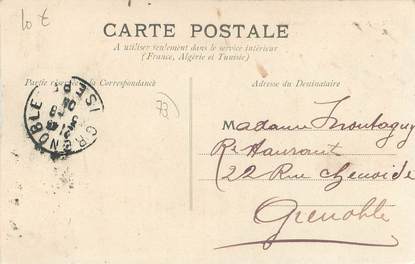 10 €
CARTE POSTALE
A utiliser seulement dans le service intérieur
(France, Algérie et Tunisie)
Partie réservée à la Correspondance
Adresse du Destinataire
GRENOBLE
Madame Montaguy
22 Rue Chenoide
Grenoble